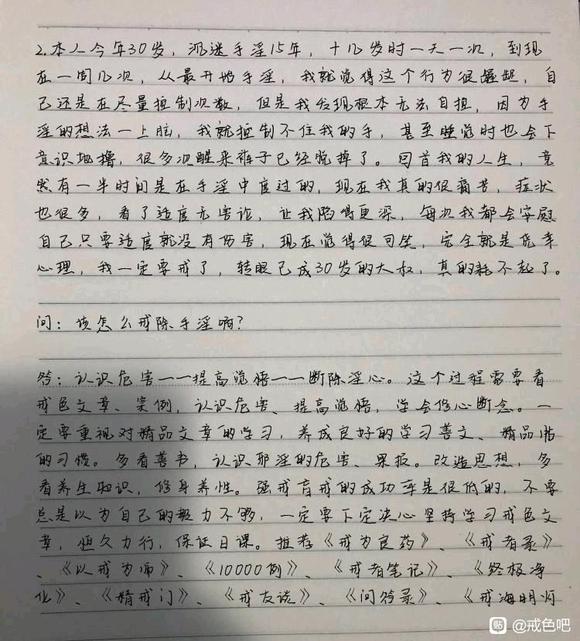 2.本人今年30岁，沉迷手淫15年，十几岁时一天一次，到现
在一周几次，从最开始手淫，我就觉得这个行为很龌龊，自
己还是在尽量控制次数，但是我发现根本无法自控，因为手
淫的想法一上脑，我就控制不住我的手，甚至睡觉时也会下
意识地撸，很多次醒来裤子已经脱掉了。回首我的人生，竟
然有一半时间是在手淫中度过的，现在我真的很痛苦，症状
也很多，看了适度无害论，让我陷得更深，每次我都会安慰
自己只要适度就没有伤害，现在觉得很可笑，完全就是侥幸
心理，我一定要戒了，转眼已成30岁的大叔，真的耗不起了。
问：该怎么戒除手淫啊？
答：认识危害——提高觉悟——断除淫心。这个过程需要看
戒色文章、案例，认识危害、提高觉悟，学会修心断念。一
定要重视对精品文章的学习，养成良好的学习善文、精品帖
的习惯。多看善书，认识邪淫的危害、果报。改造思想，多
看养生知识，修身养性。强戒盲戒的成功率是很低的，不要
总是以为自己的毅力不够，一定要下定决心坚持学习戒色文
章，恒久力行，保证日课。推荐《戒为良药》、《戒者录》
、《以戒为师》、《10000例》、《戒者笔记》、《终极净
化》、《精戒门》、《戒友谈》、《问答录》、《戒海明灯
贴 @戒色吧